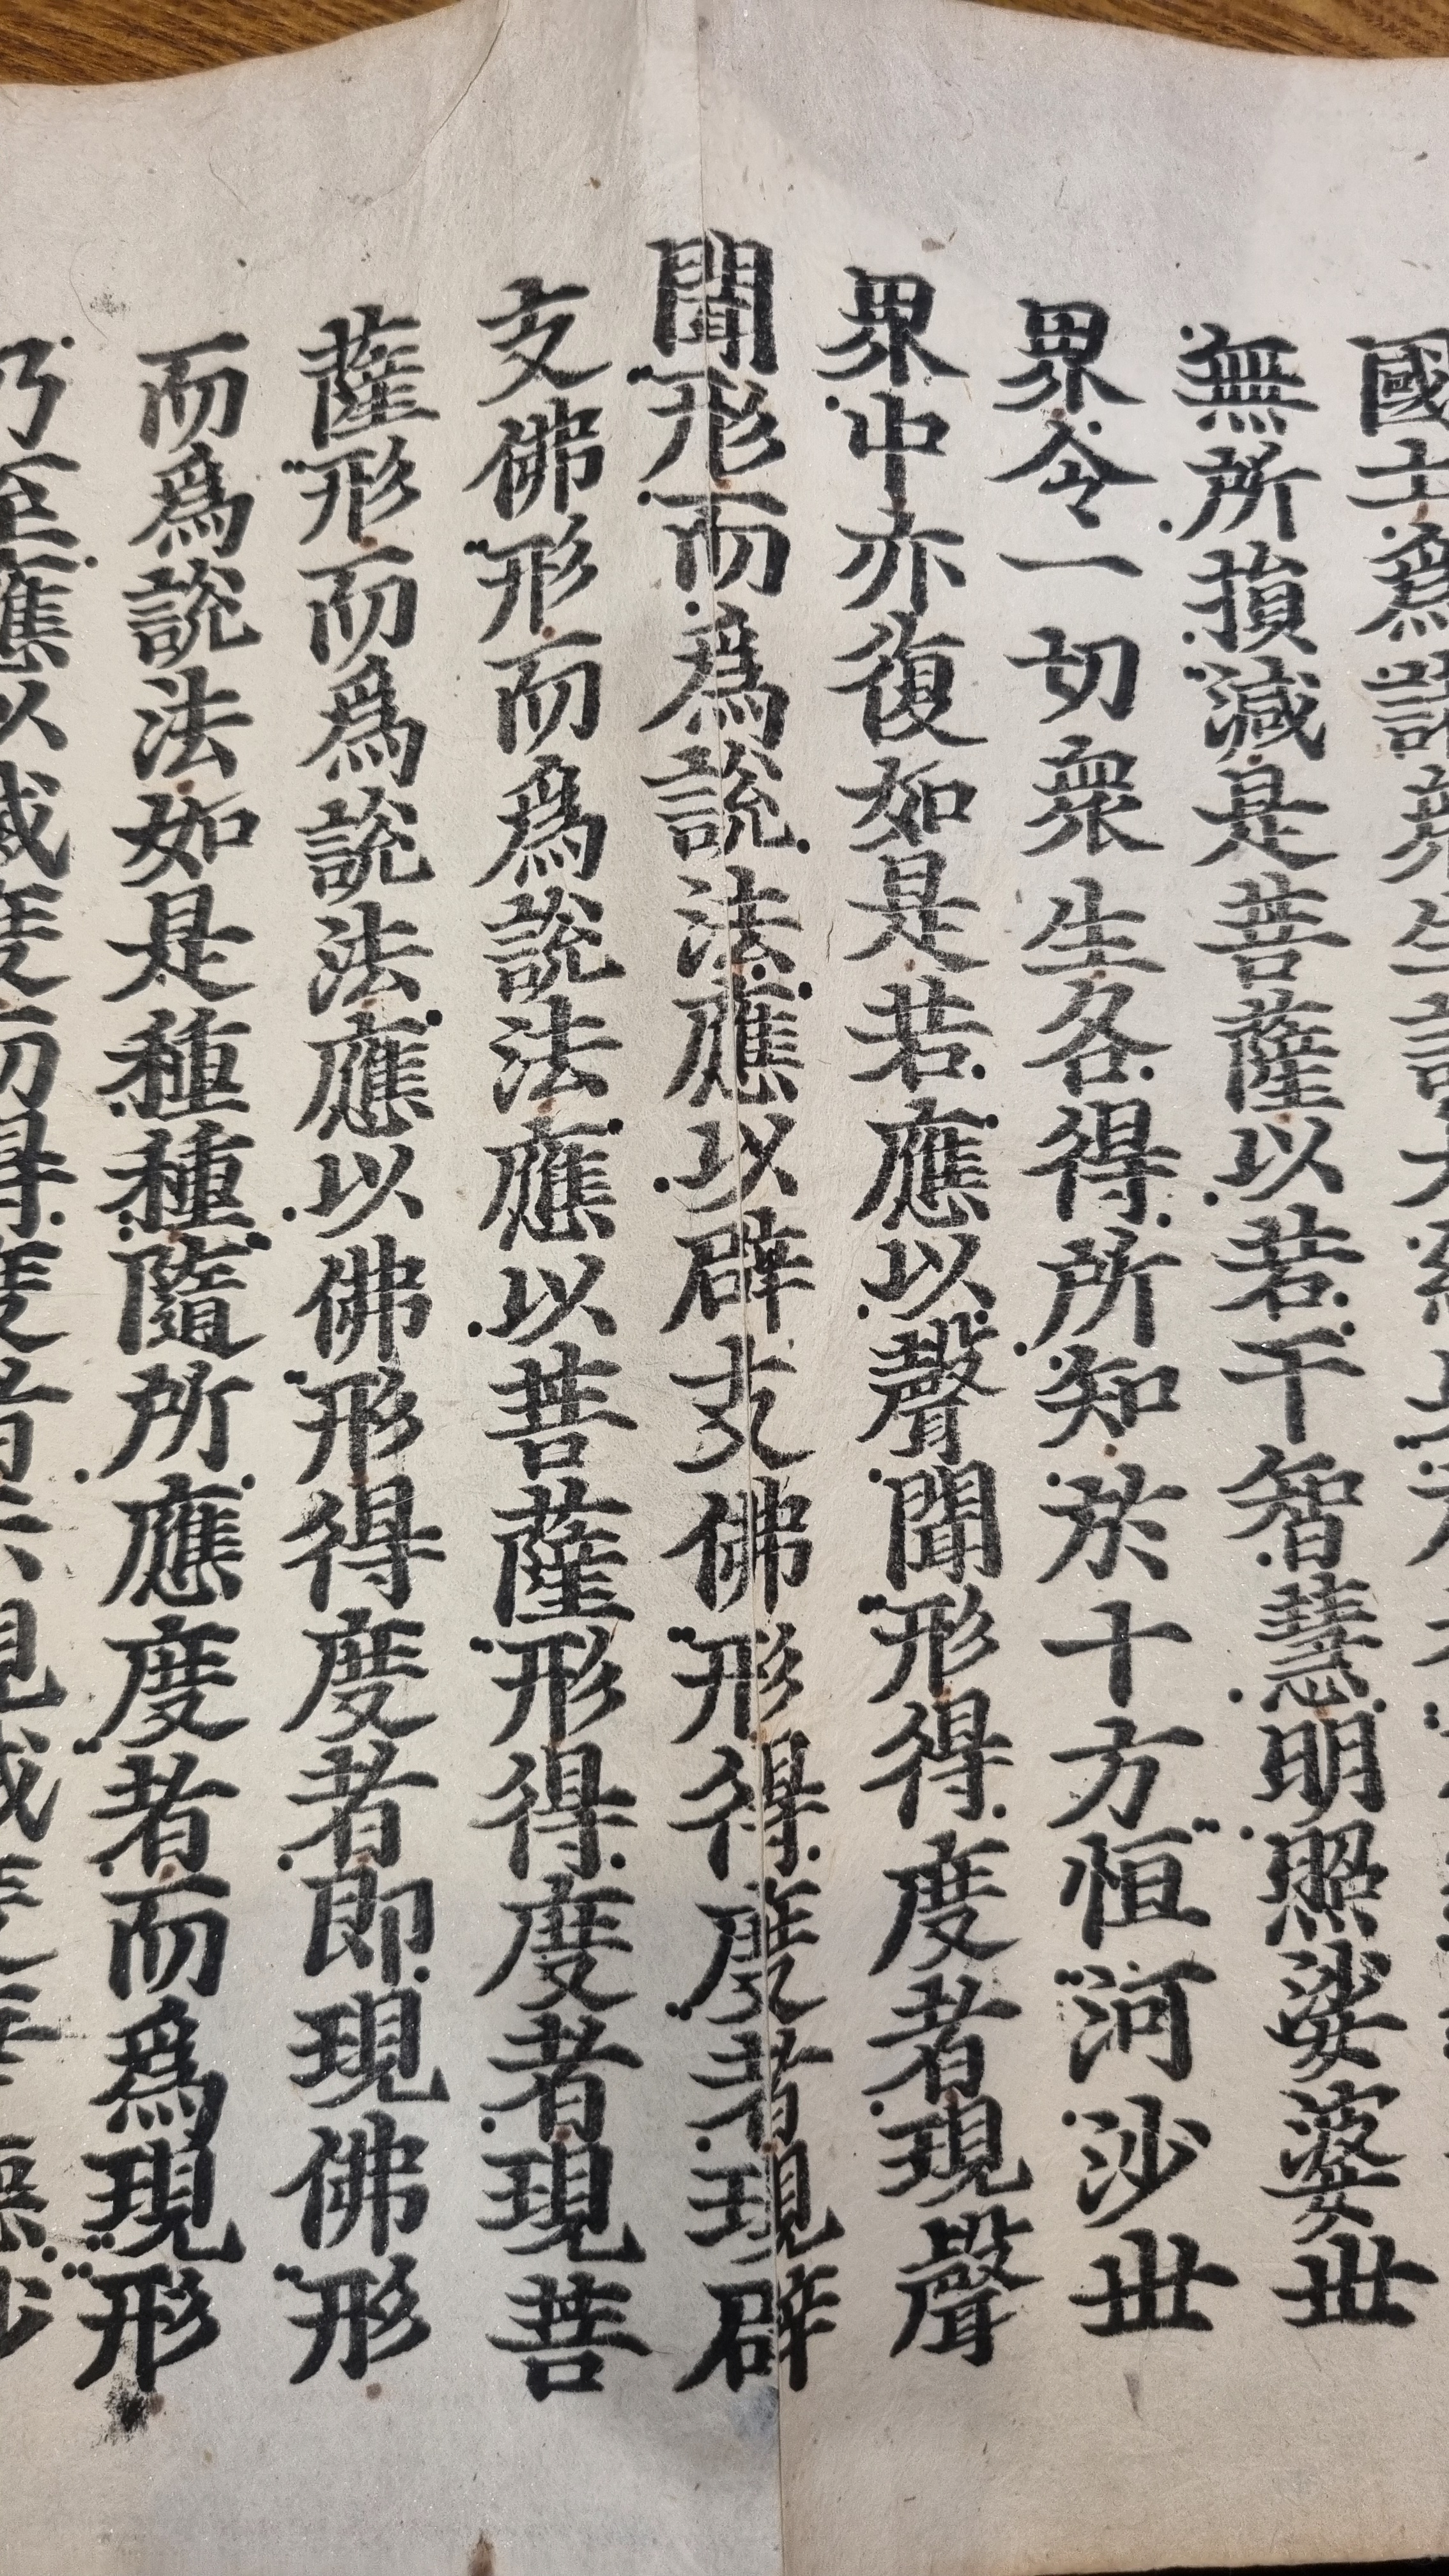 國土爲諸衆生說
無所損減是菩薩以若干智慧明照娑婆世
界令一切衆生各得所知於十方恒河沙世
界中亦復如是若應以聲聞形得度者現聲
聞形而爲說法應以辟支佛形得度者現辟
支佛形而爲說法應以菩薩形得度者現菩
薩形而爲說法應以佛形得度者即現佛形
而爲說法如是種種隨所應度者而爲現形
乃至應以滅度而得度者示現滅度